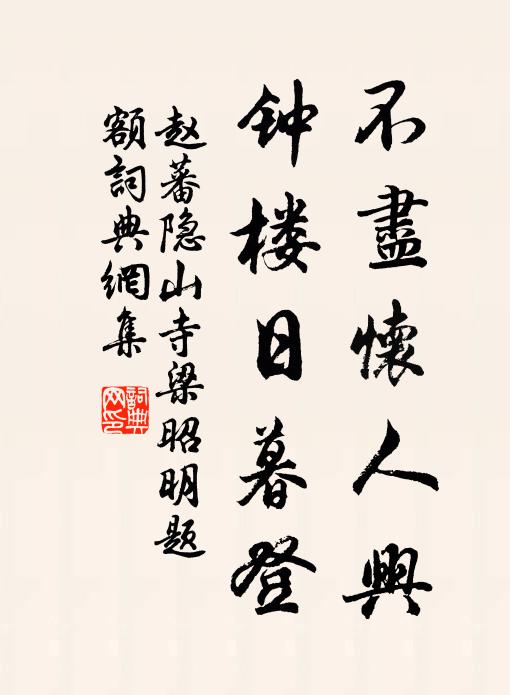 不盡懷人興
钟楼日暮登
赵蕃隐山寺梁昭明题
额詞典網集
詞典
网印